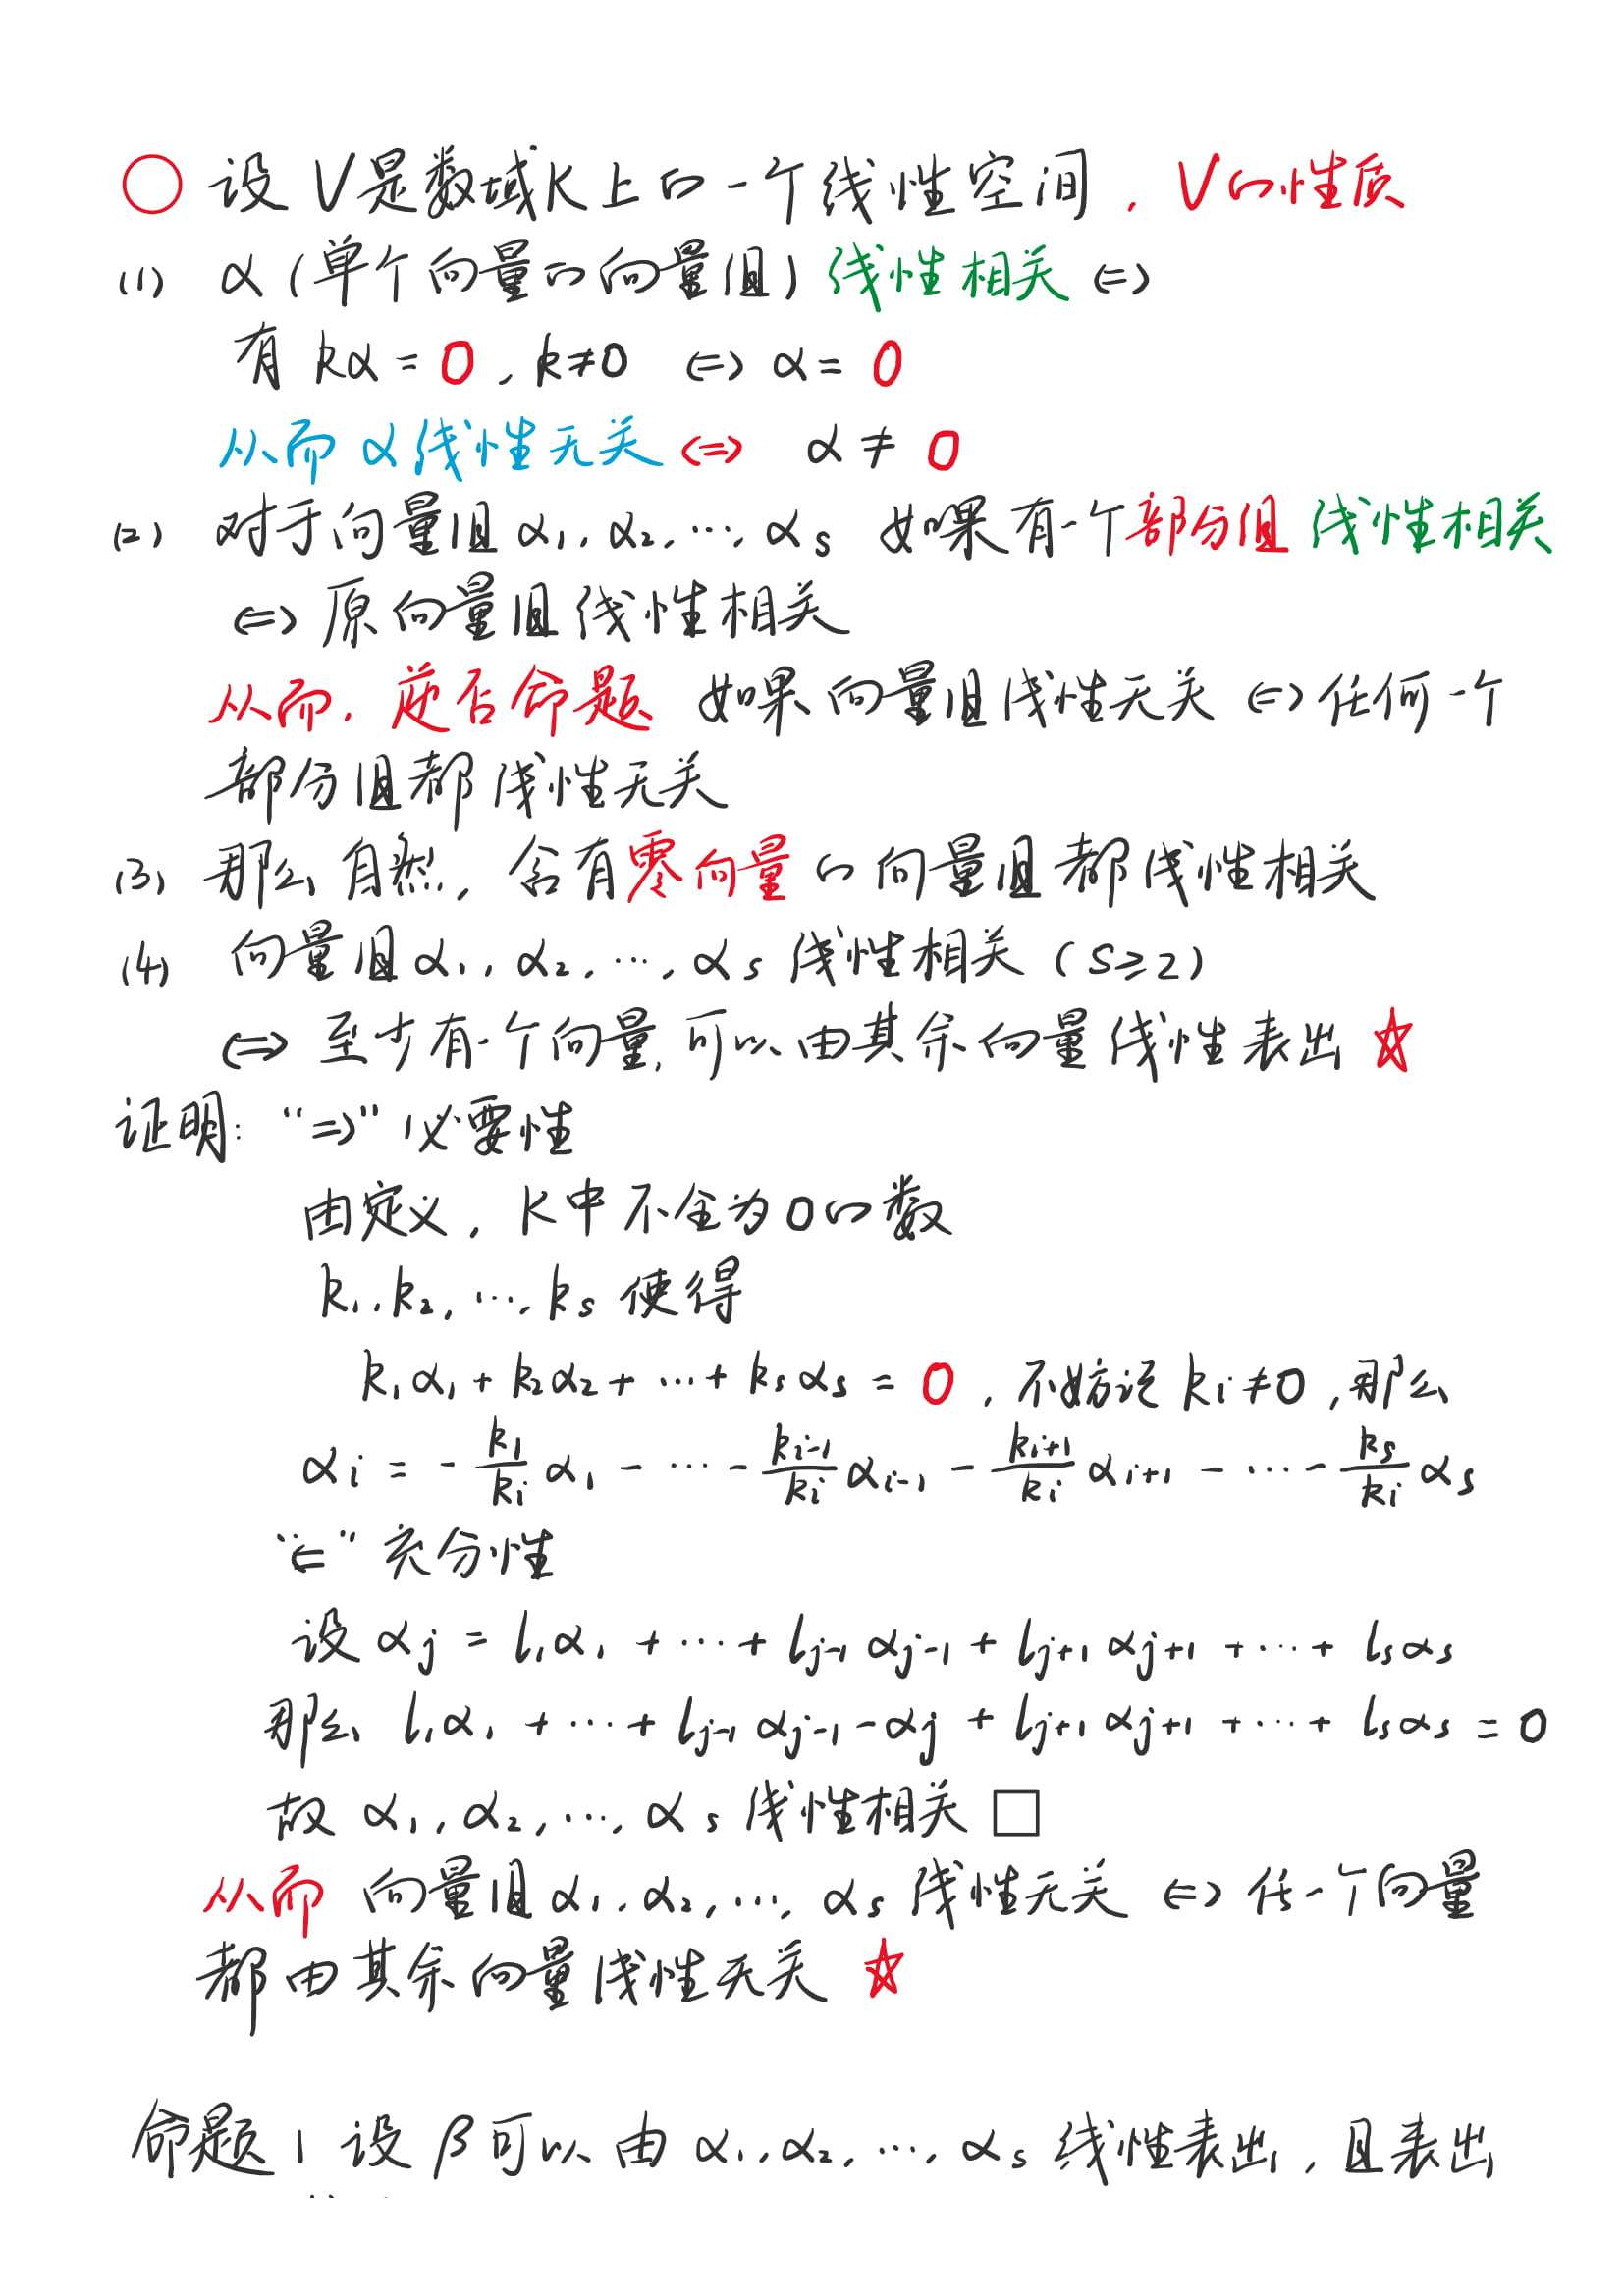 ○ 设 V是数域K上的一个线性空间，V的性质
(1) α (单个向量的向量组) 线性相关 ⇔
有 kα = 0，k≠0 ⇔ α = 0
从而 α 线性无关 ⇔ α ≠ 0
(2) 对于向量组 α₁, α₂, ⋯, αₛ 如果有一个部分组 线性相关
⇔ 原向量组线性相关
从而，逆否命题 如果向量组线性无关 ⇔ 任何一个
部分组都线性无关
(3) 那么自然，含有零向量的向量组都线性相关
(4) 向量组 α₁, α₂, ⋯, αₛ 线性相关 (s≥2)
⇔ 至少有一个向量，可以由其余向量线性表出 ☆
证明: “⇒” 必要性
由定义，K中不全为0的数
k₁, k₂, ⋯, kₛ 使得
k₁α₁ + k₂α₂ + ⋯ + kₛαₛ = 0，不妨设 kᵢ≠0，那么
αᵢ = -\frac{k₁}{kᵢ}α₁ - ⋯ - \frac{kᵢ₋₁}{kᵢ}αᵢ₋₁ - \frac{kᵢ₊₁}{kᵢ}αᵢ₊₁ - ⋯ - \frac{kₛ}{kᵢ}αₛ
“⇐” 充分性
设 αⱼ = l₁α₁ + ⋯ + lⱼ₋₁αⱼ₋₁ + lⱼ₊₁αⱼ₊₁ + ⋯ + lₛαₛ
那么 l₁α₁ + ⋯ + lⱼ₋₁αⱼ₋₁ - αⱼ + lⱼ₊₁αⱼ₊₁ + ⋯ + lₛαₛ = 0
故 α₁, α₂, ⋯, αₛ 线性相关 □
从而 向量组 α₁, α₂, ⋯, αₛ 线性无关 ⇔ 任一个向量
都由其余向量线性无关 ☆
命题1 设 β 可以由 α₁, α₂, ⋯, αₛ 线性表出，且表出